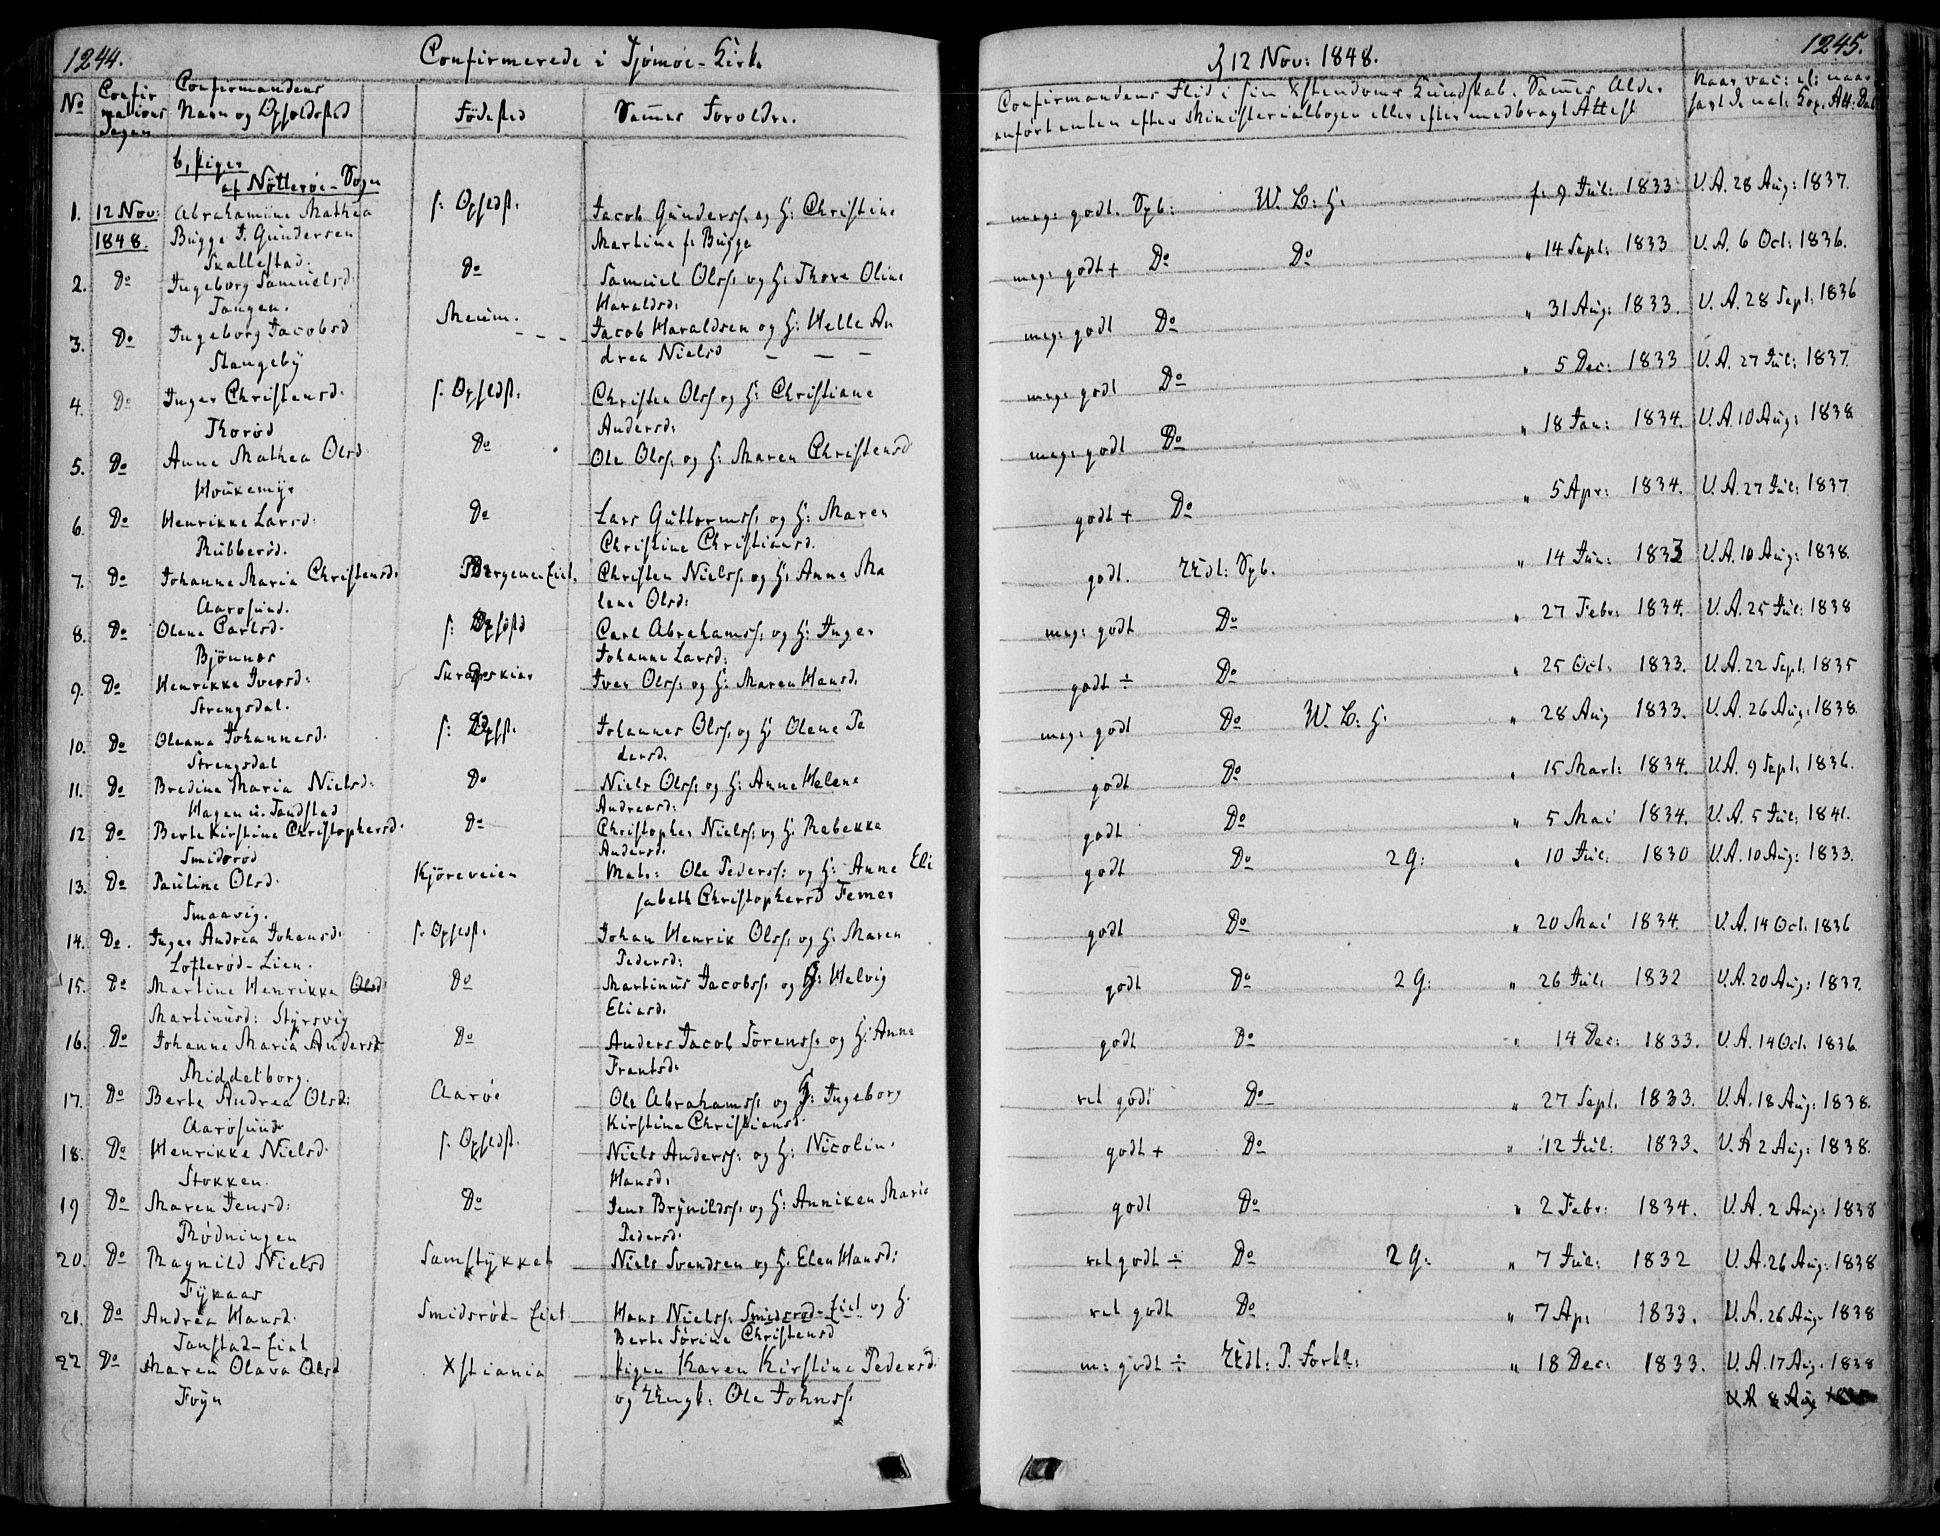 1244.
Confirmerede i Tjømøe-Kirk.
No
Confirmations Dagen
Confirmandens Navn og Opholdsted
Fødested
Sammes Forældre.
b, Piger
af Nötterøe-Sogn
1. 12 Nov: 1848. Abrahamine Mathea f: Opholdst. Jacob Gunderss. og H: Christine
Bugge J. Gundersen Martine f. Bugge
Skallestad.
2. Do Ingeborg Samuelsd: Do Samuel Olss. og H: Thora Oline
Tangen. Haraldsd:
3. Do Ingeborg Jacobsd Meum. Jacob Haraldsen og H: Helle An
Stangeby drea Nielsd
4. Do Inger Christensd: f. Opholdst. Christen Olss og H: Christiane
Thorød Andersd:
5. Do Anne Mathea Olsd. Do Ole Olss. og H: Maren Christensd
Houkemyr
6. Do Henrikke Larsd: Do Lars Guttormss. og H: Maren
Rubberød. Christine Christiansd.
7. Do Johanne Maria Christensd: Christen Nielss. og H: Anne Ma
Aarøsund. lene Olsd:
8. Do Olena Carlsd. Carl Abrahamss. og H: Inger
Bjönnes Johanne Larsd:
9. Do Henrikke Iversd: Iver Olss. og H: Maren Hansd.
Strengsdal.
10. Do Oleana Johannesd. Johannes Olss. og H: Olene Pe
Strengsdal dersd.
11. Do Bredine Maria Nielsd: Do Niels Olss: og H: Anne Helene
Hagen u. Tandstad Andreasd:
12 Do Berte Kirstine Christophersd. Do Christopher Nielss: og H: Rebekka
Smidsrød Andersd.
13. Do Pauline Olsd. Kjöreveien Matr: Ole Pederss: og H: Anne Eli
Smaavig. sabeth Christophersd Femer
14. Do. Inger Andrea Johansd: f. Opholdst. Johan Henrik Olss. og H: Maren
Lofterød-Lien. Pedersd:
15. Do Martine Henrikke Olsd Do Martinus Jacobss. og H: Helvig
Martinusd: Styrsvig Eliasd.
16. Do Johanne Maria Andersd Do Anders Jacob Sörenss. og H: Anne
Middelborg. Frantsd.
17. Do Berte Andrea Olsd: Aaröe Ole Abrahamss. og H: Ingeborg
Aarøsund Kirstine Christiansd.
18. Do Henrikke Nielsd. f. Opholdst. Niels Anderss: og H: Nicoline
Stokken. Hansd.
19 Do Maren Jensd: Do Jens Brynildss. og H: Anniken Marie
Rødningen Pedersd.
20. Do Ragnild Nielsd Samstykket Niels Svendsen og H. Elen Hansd:
Fykaas
21. Do Andrea Hansd. Smidsrød-Eiet Hans Nielss. Smidsrød-Eiet og H.
Tanstad-Eiet Berte Sörine Christensd
22 Do Maren Olava Olsd Xstiania Pigen Karen Kirstine Pedersd.
Föyn og Ungk: Ole Johnss.
1245.
d 12 Nov: 1848.
Confirmandens Flid i sin Xstendoms Kundskab. Sammes Alder
anført enten efter Ministerialbogen eller efter medbragt Attest
Naar vac: el: naar
havt de nat: Kop. Att: Dat
meg: godt. Spb: W. L: H. f: 9 Jul: 1833 V.A. 28 Aug: 1837.
meg: godt + Do Do " 14 Sept: 1833 V.A. 6 Oct: 1836.
meg: godt Do " 31 Aug: 1833. V.A. 28 Sept: 1836
meg: godt Do " 5 Dec: 1833 V.A. 27 Jul: 1837.
meg: godt Do " 18 Jan: 1834. V.A. 10 Aug: 1838
godt + Do " 5 Apr: 1834. V.A. 27 Jul: 1837
godt. Udl: Spb. " 14 Jun: 1833 V.A. 10 Aug: 1838.
meg: godt Do " 27 Febr: 1834. V.A. 25 Jul: 1838
godt ÷ Do " 25 Oct: 1833. V.A. 22 Sept. 1835
meg: godt Do W. L: H: " 28 Aug 1833. V.A. 26 Aug: 1838.
godt Do " 15 Mart: 1834. V.A. 9 Sept. 1836.
godt Do " 5 Mai 1834. V.A. 5 Jul: 1841.
godt Do 2 G: " 10 Jul: 1830 V.A. 10 Aug: 1833.
godt Do " 20 Mai 1834. V.A. 14 Oct. 1836
godt Do 2 G: " 26 Jul. 1832 V.A. 20 Aug: 1837.
godt Do " 14 Dec: 1833. V.A. 14 Oct. 1836.
ret godt Do " 27 Sept. 1833. V.A. 18 Aug: 1838.
godt + Do " 12 Jul: 1833. V.A 2 Aug: 1838.
godt Do " 2 Febr: 1834. V.A. 2 Aug: 1838
ret godt ÷ Do 2 G: " 7 Jul: 1832 V.A. 26 Aug: 1838
ret godt Do " 7 Apr 1833. V.A. 26 Aug: 1838
m: godt ÷ Udl: P. Forkl: " 18 Dec: 1833. V.A. 17 Aug. 1838